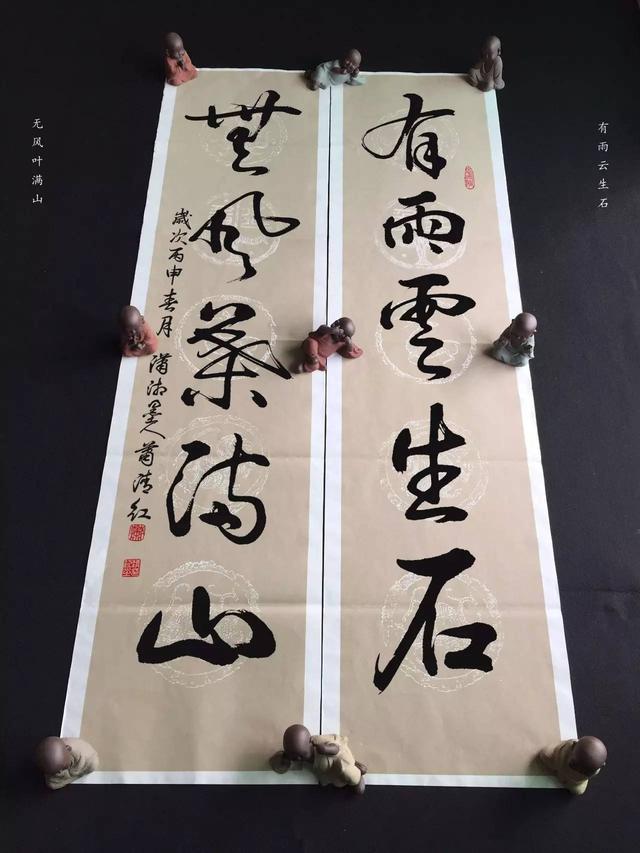 有雨云生石
有雨雲生石
無風葉满山
歲次丙申春月 潇湘墨人 蕭清紅
无风叶满山